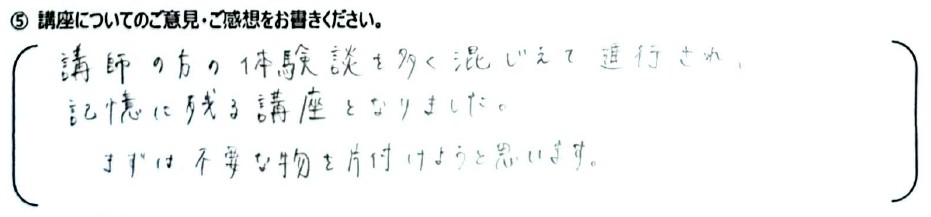 ⑤ 講座についてのご意見・ご感想をお書きください。
講師の方の体験談を多く混じえて進行され、
記憶に残る講座となりました。
まずは不要な物を片付けようと思います。